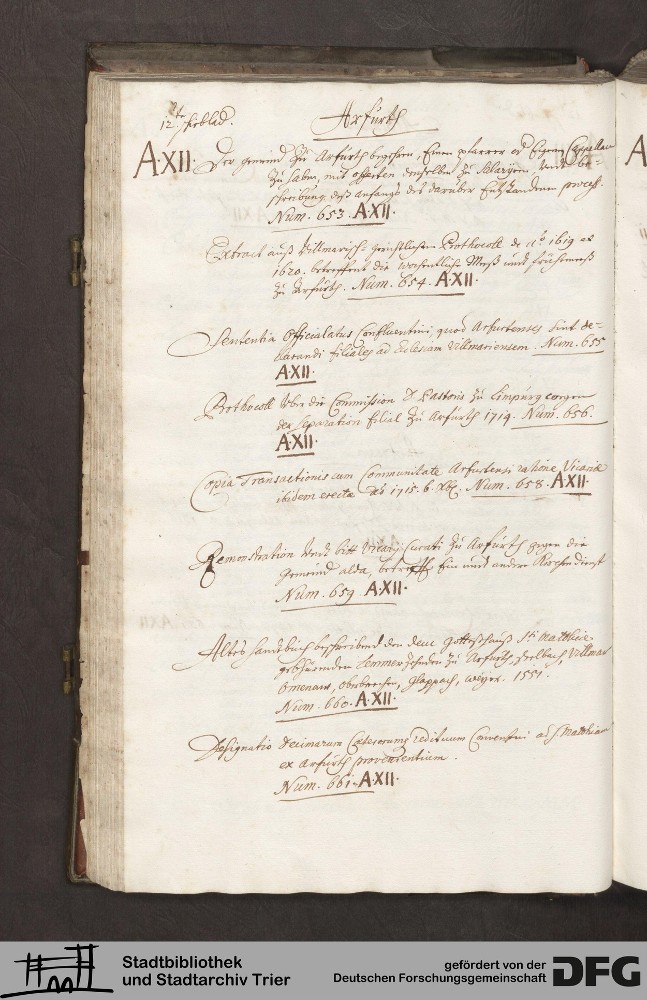 12te schublad.
Arfurth
A·XII· Der gemeind zu Arfurth begehren, Einen pfarrer od Eigenen Cappellan
zu haben, mit offerten denselben zu Salaryren, undt be-
schreibung deß anfangs des darüber Entstandenen process.
Num. 653. A·XII·
Extract auß Villmarisch gerichtlichem Prothocoll de ao 1619 et
1620. betreffent die wochentliche Meß und frühemeß
zu Arfurth. Num. 654. A·XII·
Sententia Officialatus Confluentini, quod Arfurtenses sint de-
clarandi filiales ad Eclesiam Villmariensem. Num. 655
A·XII·
Prothocoll über die Commission D. Pastoris zu Limpurg wegen
der separation filial zu Arfurth 1714. Num. 656.
A·XII·
Copia Transactionis cum Communitate Arfurtensi ratione Vicariæ
ibidem erectæ ao 1715. 6. Xbr. Num. 658. A·XII·
Remonstration undt bitt Vicarij Curati zu Arfurth gegen die
gemeind alda, betreff Ein und andere Kirchendienst
Num. 659. A·XII·
Altes handtbuch beschreibend den dem Gotteshauß Sti Matthiæ
gebhürenden zehnden zu Arfurth, Seelbach, Villmar
Omenaw, oberbrechen, Weyer. 1551.
Num. 660. A·XII·
Designatio Decimarum Cæterorumq reddituum Conventui ad S Matthiam
ex Arfurth provenientium.
Num. 661. A·XII·
A
Stadtbibliothek
und Stadtarchiv Trier
gefördert von der
Deutschen Forschungsgemeinschaft
DFG